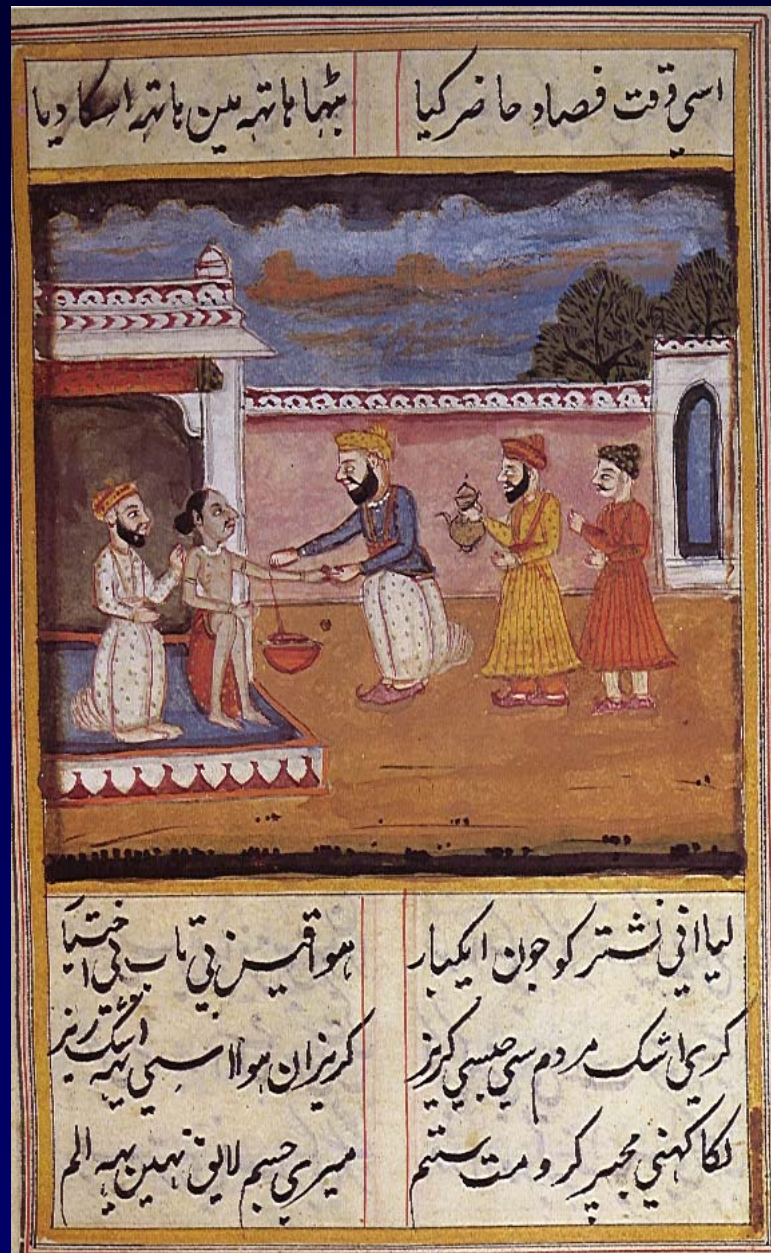 اسی وقت فصاد حاضر کیا بٹھا ہاتہہ مین ہاتہہ اسکا دیا
لیا اوقی نشتر کو جون ایکبار ہوا قیس بی تاب بی اختیا
کری اشک مردم سی جیسی کریز کریزان ہوا اسسی یہہ اشک ریز
لکا کہنی مجہپر کرو مت ستم میری جسم لایق نہین یہہ الم